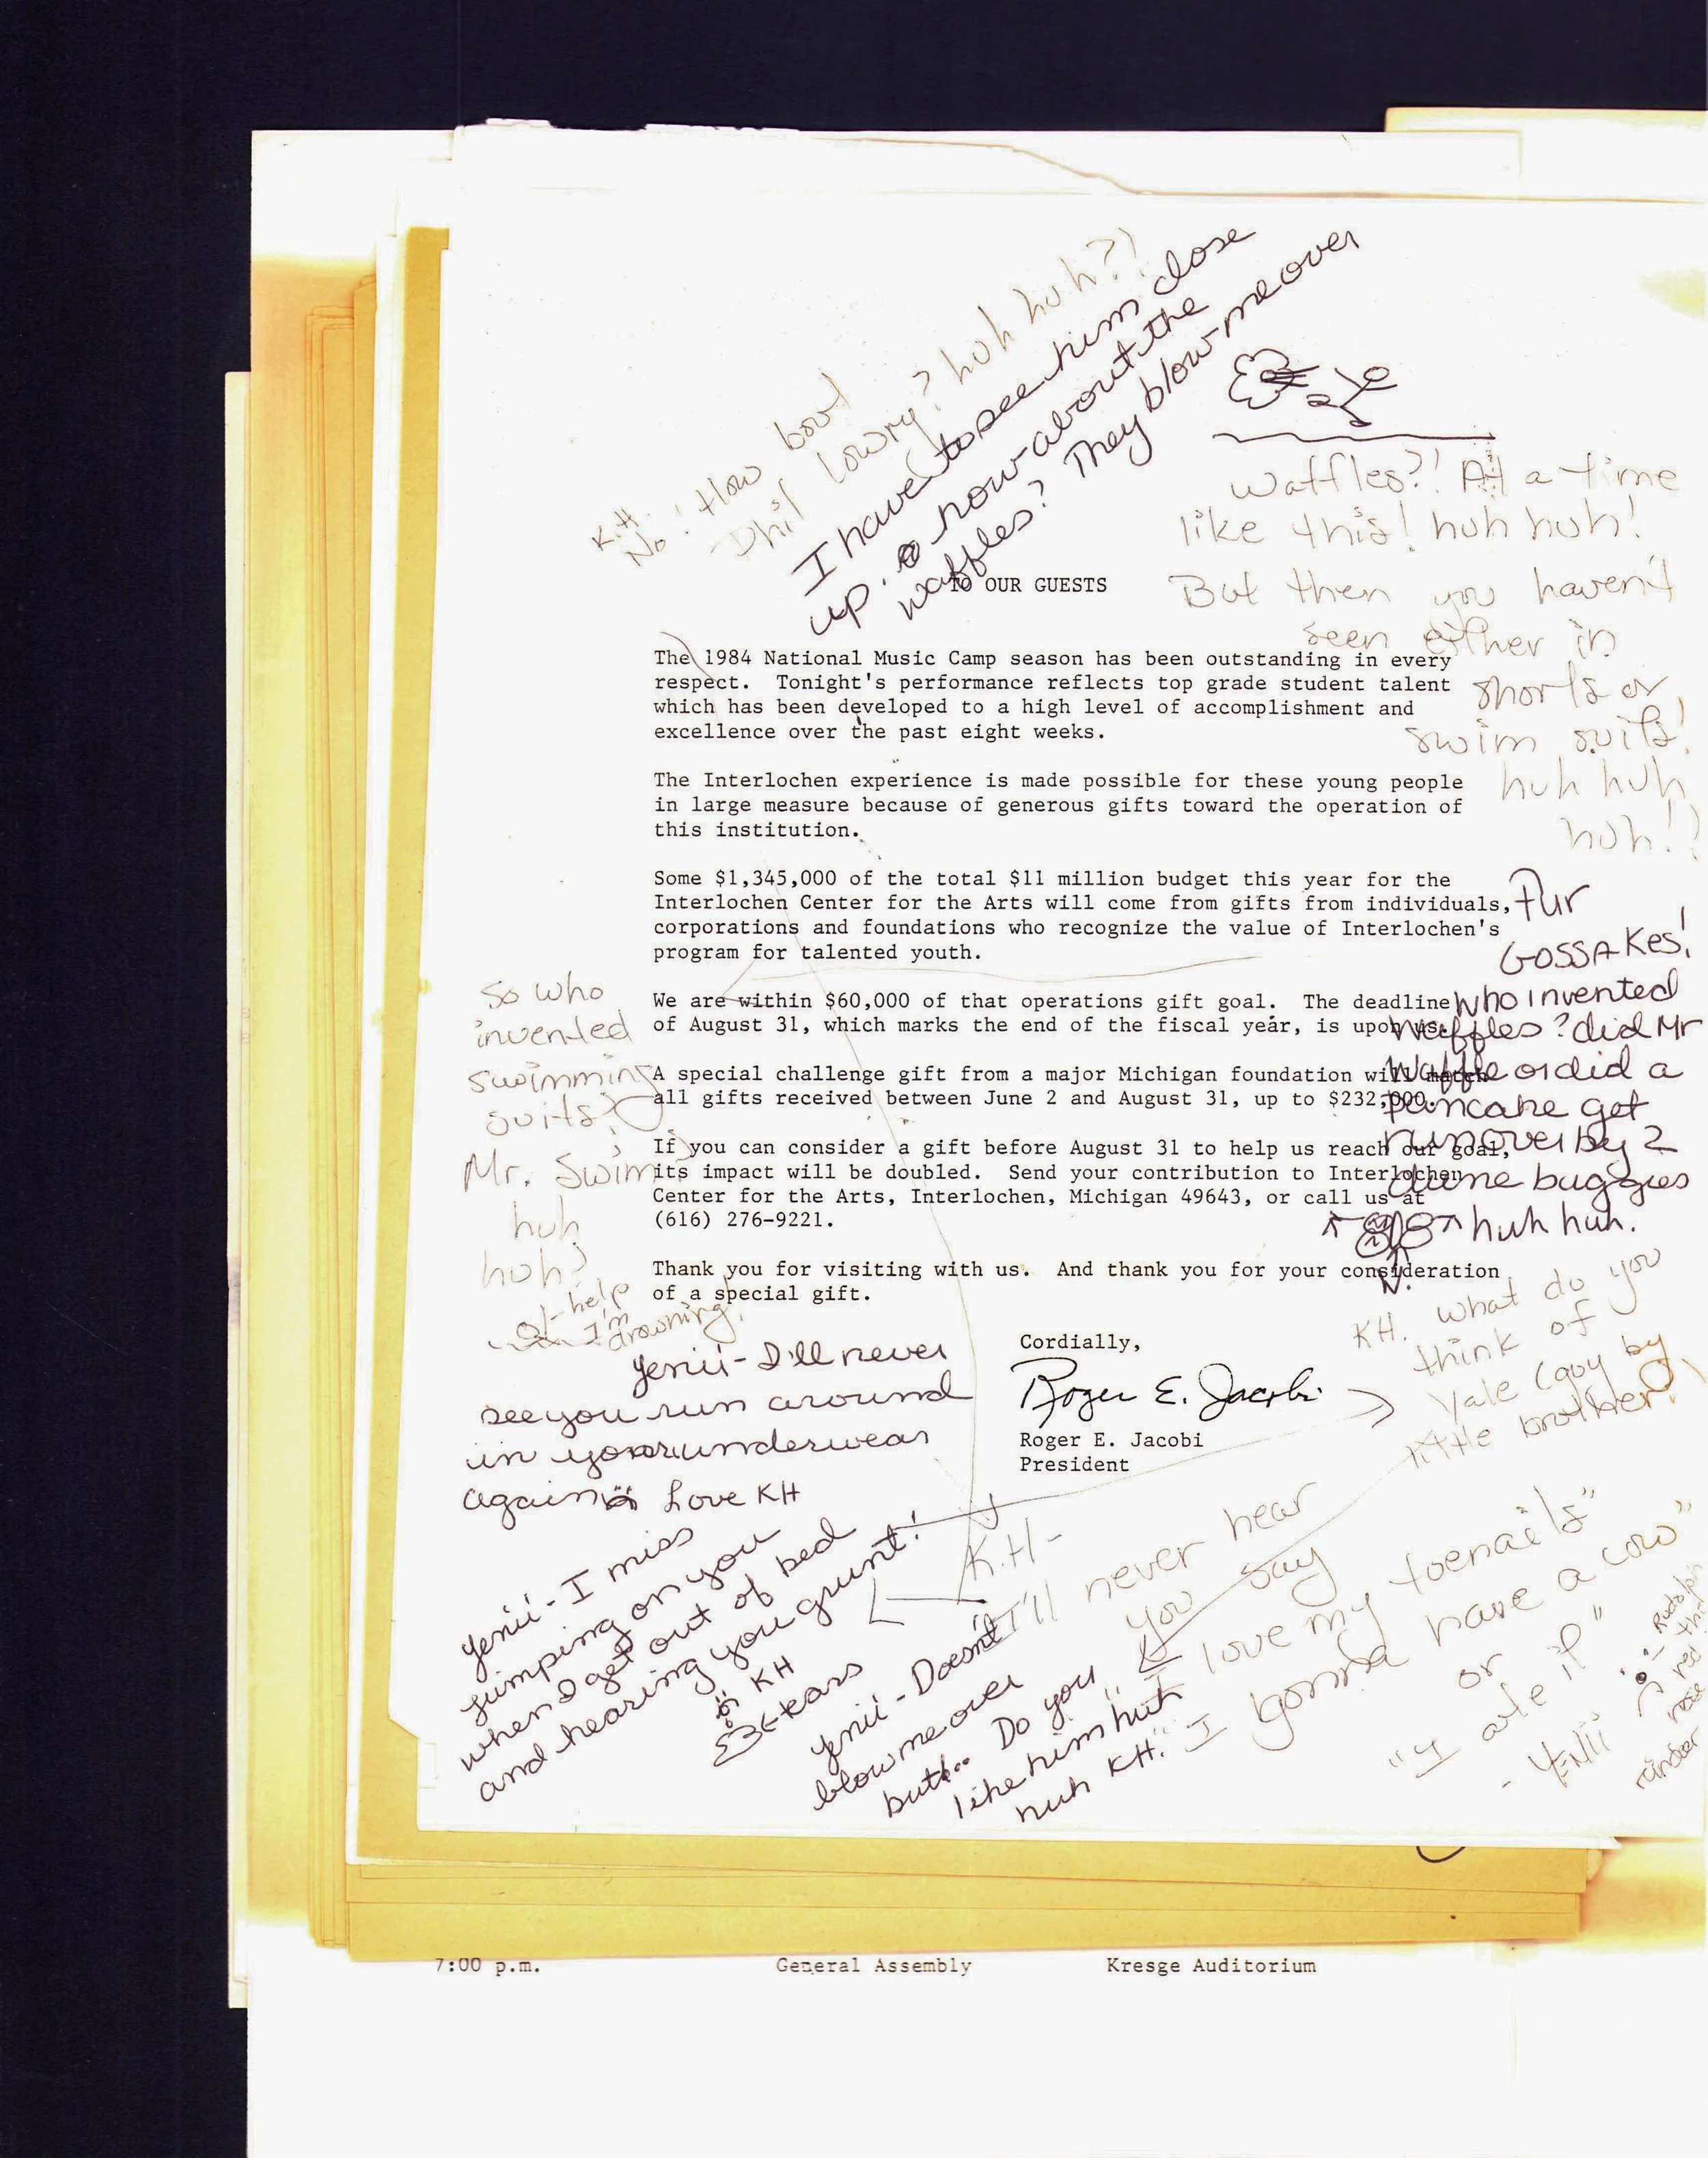 K.H.
No! How bout
Phil Lowry? huh huh?!
I have to see him close
up. how about the
waffles? They blow me over
Waffles?! At a time
like this! huh huh!
But then you haven't
seen either in
shorts or
swim suits!
huh huh
huh!?
TO OUR GUESTS
The 1984 National Music Camp season has been outstanding in every
respect. Tonight's performance reflects top grade student talent
which has been developed to a high level of accomplishment and
excellence over the past eight weeks.
The Interlochen experience is made possible for these young people
in large measure because of generous gifts toward the operation of
this institution.
Some $1,345,000 of the total $11 million budget this year for the
Interlochen Center for the Arts will come from gifts from individuals,
corporations and foundations who recognize the value of Interlochen's
program for talented youth.
We are within $60,000 of that operations gift goal. The deadline
of August 31, which marks the end of the fiscal year, is upon us.
A special challenge gift from a major Michigan foundation will match
all gifts received between June 2 and August 31, up to $232,000.
If you can consider a gift before August 31 to help us reach our goal,
its impact will be doubled. Send your contribution to Interlochen
Center for the Arts, Interlochen, Michigan 49643, or call us at
(616) 276-9221.
Thank you for visiting with us. And thank you for your consideration
of a special gift.
Cordially,
Roger E. Jacobi
Roger E. Jacobi
President
Fur
GOSSAKES!
who invented
waffles? did Mr
Waffle or did a
pancake get
runover by 2
dune buggies
huh huh.
So who
invented
swimming
suits?
Mr. Swim?
huh
huh?
help
I'm
drowning!
Yenii - I'll never
see you run around
in your underwear
again Love KH
KH. What do you
think of
Yale (guy by
little brother)
Yenii - I miss
jumping on you
when I get out of bed
and hearing you grunt!
KH
tears
K.H-
I'll never hear
you say
"I love my toenails"
"I gonna have a cow"
or
"I ate it"
- YENii
Rudolph
the
red
nose
raindeer
Yenii - Doesn't
blow me over
but... Do you
like him huh
huh KH.
7:00 p.m. General Assembly Kresge Auditorium